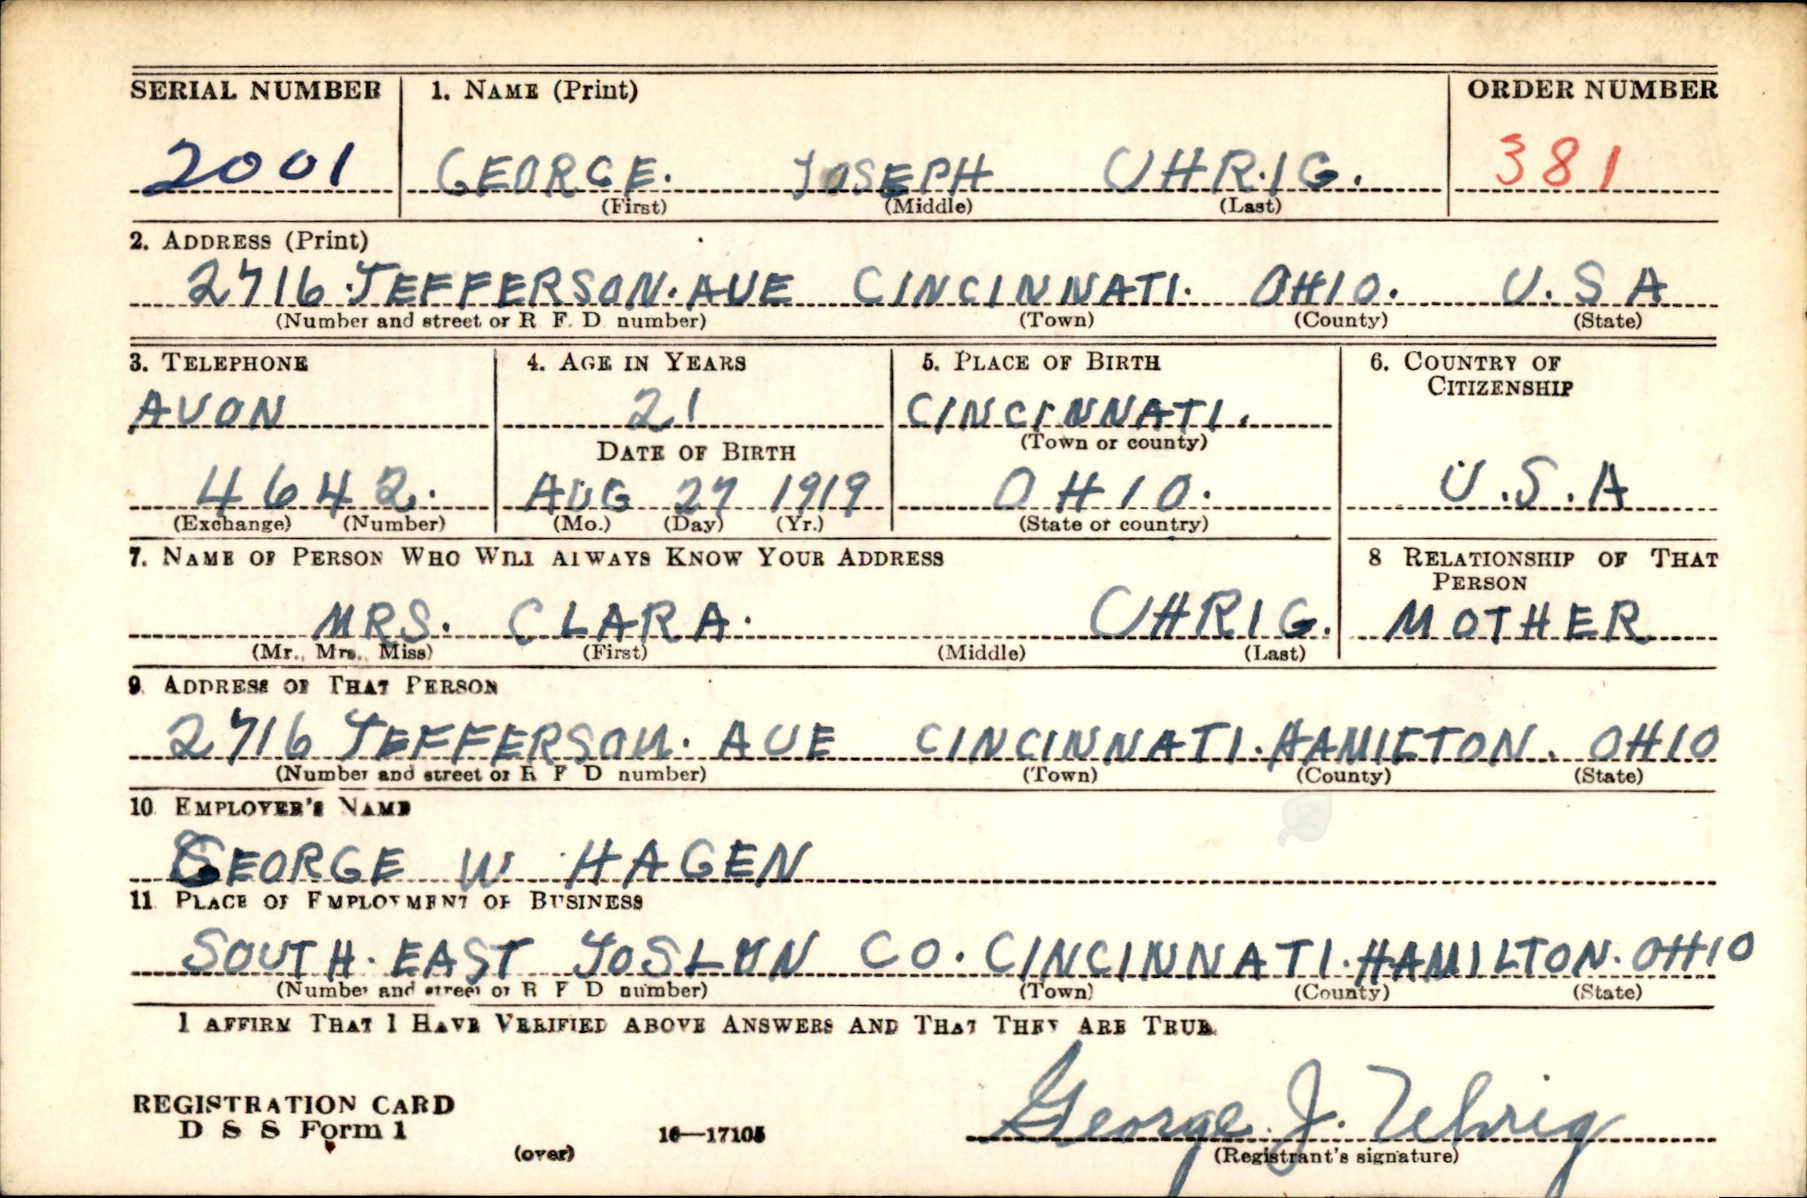 SERIAL NUMBER 1. NAME (Print) ORDER NUMBER
2001 GEORGE. JOSEPH UHRIG. 381
(First) (Middle) (Last)
2. ADDRESS (Print)
2716 JEFFERSON. AVE CINCINNATI. OHIO. U.S A
(Number and street or R F. D number) (Town) (County) (State)
3. TELEPHONE 4. AGE IN YEARS 5. PLACE OF BIRTH 6. COUNTRY OF CITIZENSHIP
AVON 21 CINCINNATI.
DATE OF BIRTH (Town or county)
4642. AUG 27 1919 OHIO. U.S.A
(Exchange) (Number) (Mo.) (Day) (Yr.) (State or country)
7. NAME OF PERSON WHO WILL ALWAYS KNOW YOUR ADDRESS 8 RELATIONSHIP OF THAT PERSON
MRS. CLARA. UHRIG. MOTHER
(Mr., Mrs., Miss) (First) (Middle) (Last)
9. ADDRESS OF THAT PERSON
2716 JEFFERSON. AVE CINCINNATI. HAMILTON. OHIO
(Number and street or R F D number) (Town) (County) (State)
10 EMPLOYER'S NAME
GEORGE W HAGEN
11 PLACE OF EMPLOYMENT OR BUSINESS
SOUTH. EAST JOSLYN CO. CINCINNATI. HAMILTON. OHIO
(Number and street or R F D number) (Town) (County) (State)
I AFFIRM THAT I HAVE VERIFIED ABOVE ANSWERS AND THAT THEY ARE TRUE.
REGISTRATION CARD
D S S Form 1 George J. Uhrig
(over) 16—17105 (Registrant's signature)